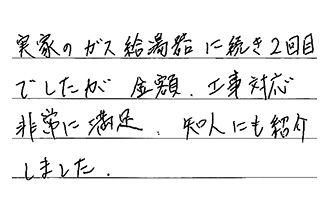 実家のガス給湯器に続き2回目
でしたが 金額、工事対応
非常に満足、知人にも紹介
しました.